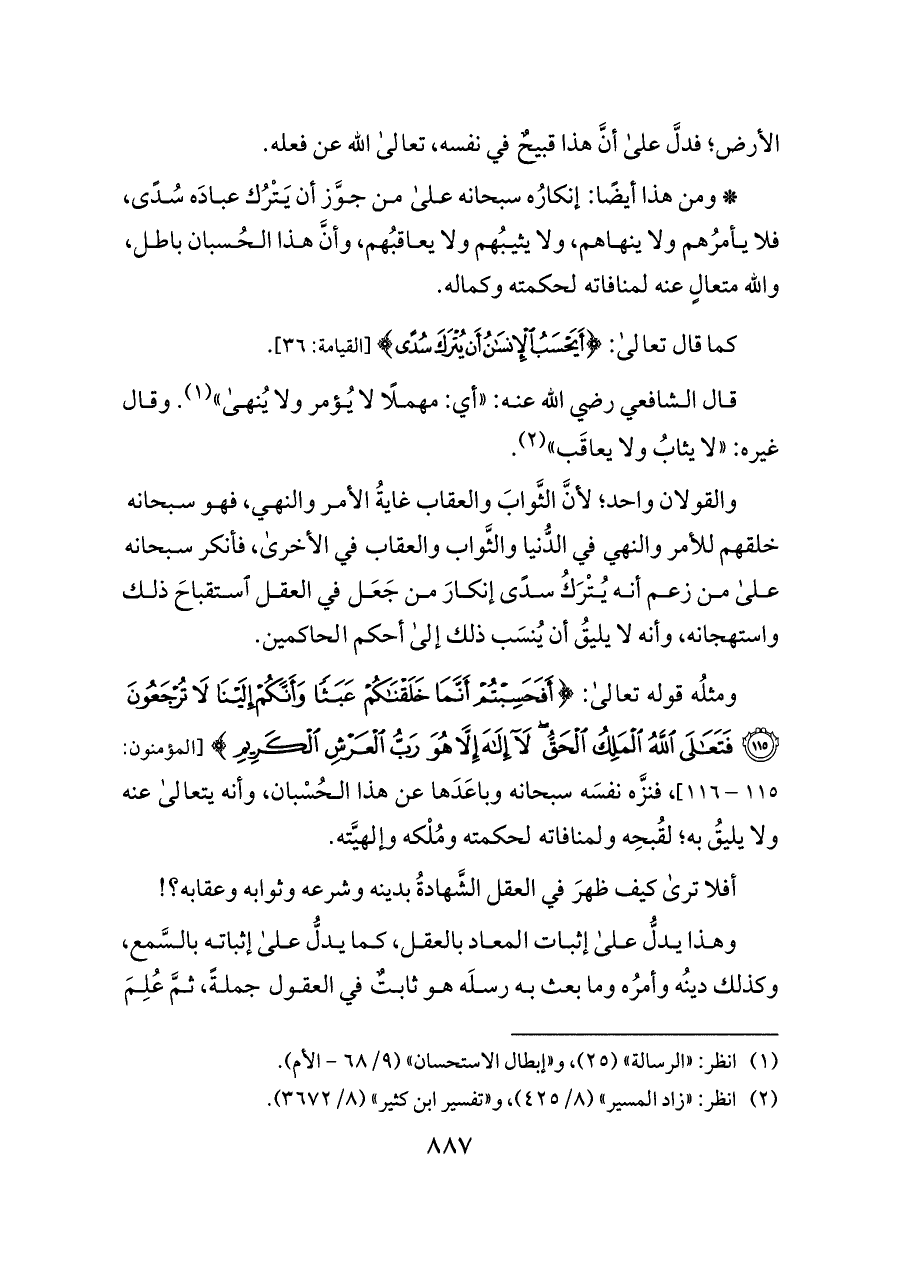 الأرض؛ فدلَّ علىٰ أنَّ هذا قبيحٌ في نفسه، تعالىٰ الله عن فعله.
* ومن هذا أيضًا: إنكارُه سبحانه علىٰ من جوَّز أن يَتْرُك عبادَه سُدًى،
فلا يأمرُهم ولا ينهاهم، ولا يثيبُهم ولا يعاقبُهم، وأنَّ هذا الحُسبان باطل،
والله متعالٍ عنه لمنافاته لحكمته وكماله.
كما قال تعالىٰ: ﴿أَيَحْسَبُ ٱلْإِنسَٰنُ أَن يُتْرَكَ سُدًى﴾ [القيامة: ٣٦].
قال الشافعي رضي الله عنه: «أي: مهملًا لا يُؤمر ولا يُنهىٰ»(١). وقال
غيره: «لا يثابُ ولا يعاقَب»(٢).
والقولان واحد؛ لأنَّ الثَّوابَ والعقاب غايةُ الأمر والنهي، فهو سبحانه
خلقهم للأمر والنهي في الدُّنيا والثَّواب والعقاب في الأخرىٰ، فأنكر سبحانه
علىٰ من زعم أنه يُتْرَكُ سدًى إنكارَ من جَعَل في العقل ٱستقباحَ ذلك
واستهجانه، وأنه لا يليقُ أن يُنسَب ذلك إلىٰ أحكم الحاكمين.
ومثلُه قوله تعالىٰ: ﴿أَفَحَسِبْتُمْ أَنَّمَا خَلَقْنَٰكُمْ عَبَثًا وَأَنَّكُمْ إِلَيْنَا لَا تُرْجَعُونَ
۝١١٥ فَتَعَٰلَى ٱللَّهُ ٱلْمَلِكُ ٱلْحَقُّ ۖ لَآ إِلَٰهَ إِلَّا هُوَ رَبُّ ٱلْعَرْشِ ٱلْكَرِيمِ﴾ [المؤمنون:
١١٥ - ١١٦]، فنزَّه نفسَه سبحانه وباعَدَها عن هذا الحُسْبان، وأنه يتعالىٰ عنه
ولا يليقُ به؛ لقُبحِه ولمنافاته لحكمته ومُلْكه وإلهيَّته.
أفلا ترىٰ كيف ظهرَ في العقل الشَّهادةُ بدينه وشرعه وثوابه وعقابه؟!
وهذا يدلُّ علىٰ إثبات المعاد بالعقل، كما يدلُّ علىٰ إثباته بالسَّمع،
وكذلك دينُه وأمرُه وما بعث به رسلَه هو ثابتٌ في العقول جملةً، ثمَّ عُلِمَ
(١) انظر: «الرسالة» (٢٥)، و«إبطال الاستحسان» (٩/ ٦٨ - الأم).
(٢) انظر: «زاد المسير» (٨/ ٤٢٥)، و«تفسير ابن كثير» (٨/ ٣٦٧٢).
٨٨٧